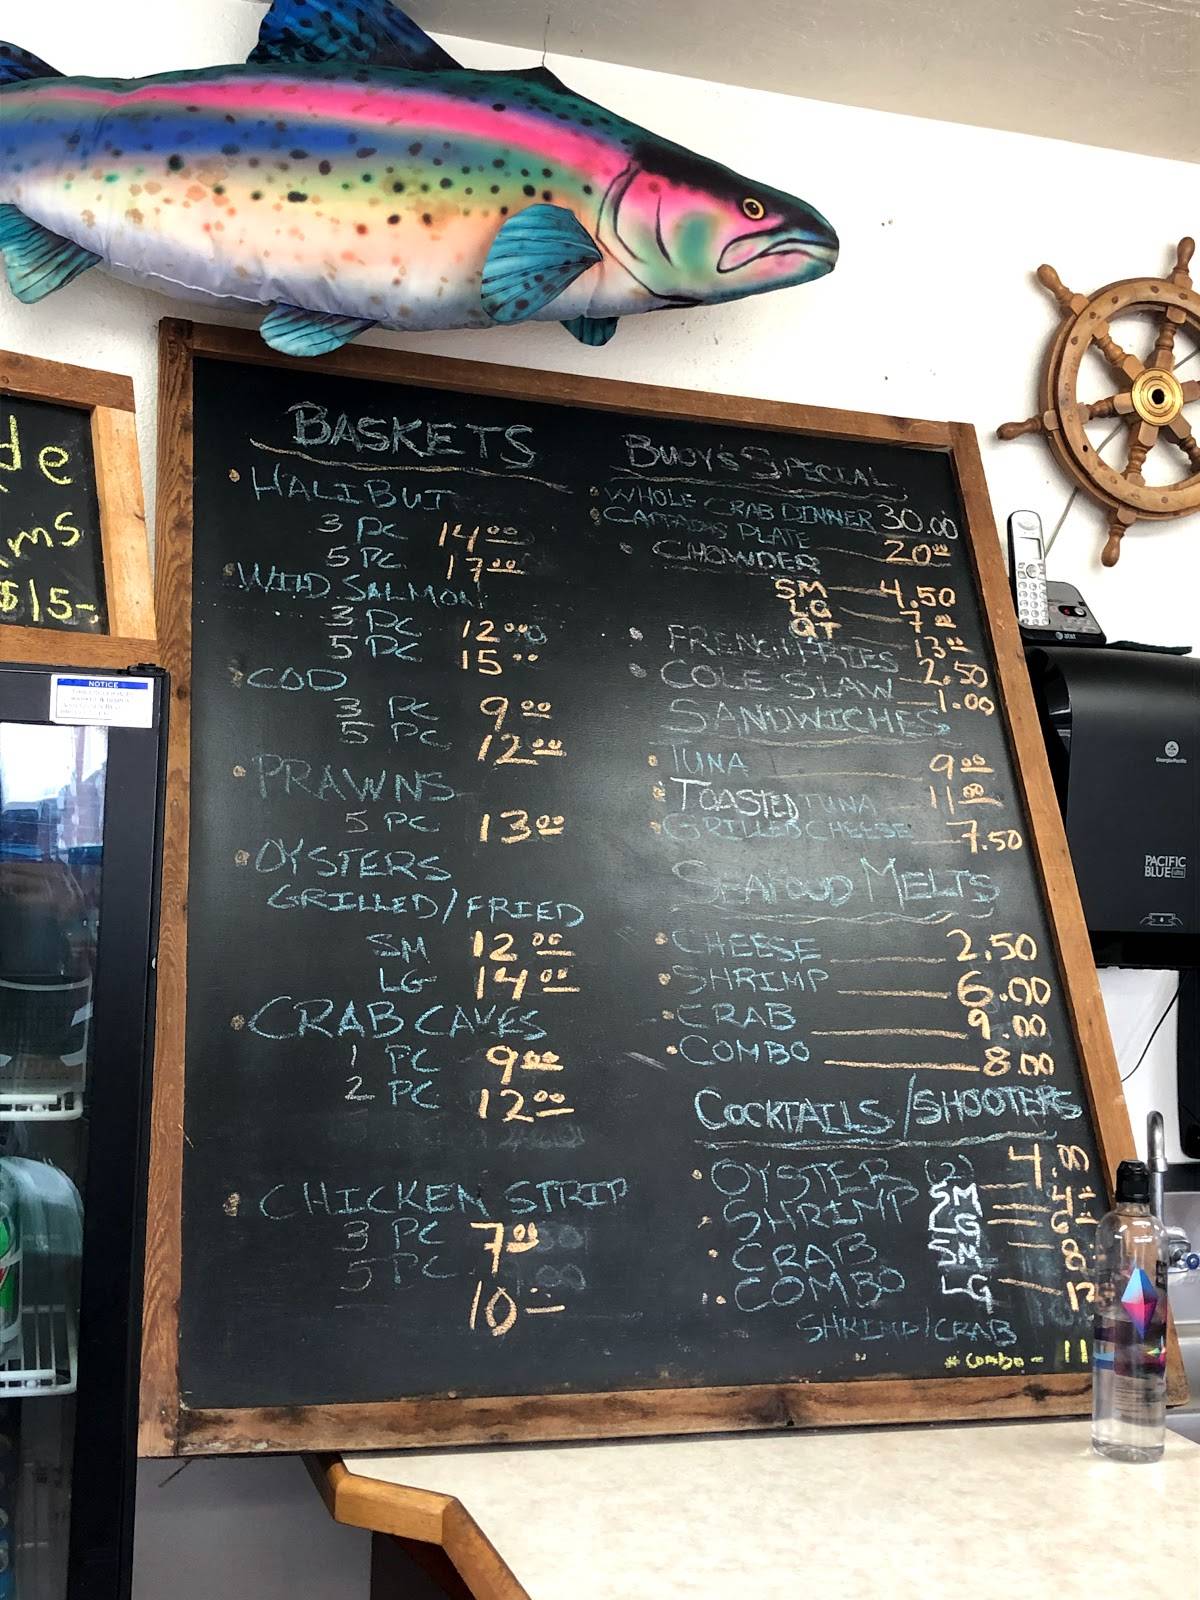 de
ms
$15-
NOTICE
BASKETS
• HALIBUT
3 PC 14.00
5 PC. 17.00
• WILD SALMON
3 PC 12.00
5 PC 15.00
• COD
3 PC 9.00
5 PC 12.00
• PRAWNS
5 PC 13.00
• OYSTERS
GRILLED/FRIED
SM 12.00
LG 14.00
• CRAB CAVES
1 PC 9.00
2 PC 12.00
• CHICKEN STRIP
3 PC 7.00
5 PC 10.—
BUOY'S SPECIAL
• WHOLE CRAB DINNER 30.00
• CAPTAINS PLATE 20.00
• CHOWDER
SM 4.50
LG 7.00
QT 13.00
• FRENCH FRIES 2.50
• COLE SLAW 1.00
SANDWICHES
• TUNA 9.00
• TOASTED TUNA 11.00
• GRILLED CHEESE 7.50
SEAFOOD MELTS
• CHEESE 2.50
• SHRIMP 6.00
• CRAB 9.00
• COMBO 8.00
COCKTAILS/SHOOTERS
• OYSTER (2) 4.00
• SHRIMP SM 4.—
LG 6.—
• CRAB SM 8
• COMBO LG 12
SHRIMP/CRAB
* Combo - 11
at&t
Georgia-Pacific
PACIFIC
BLUE ultra